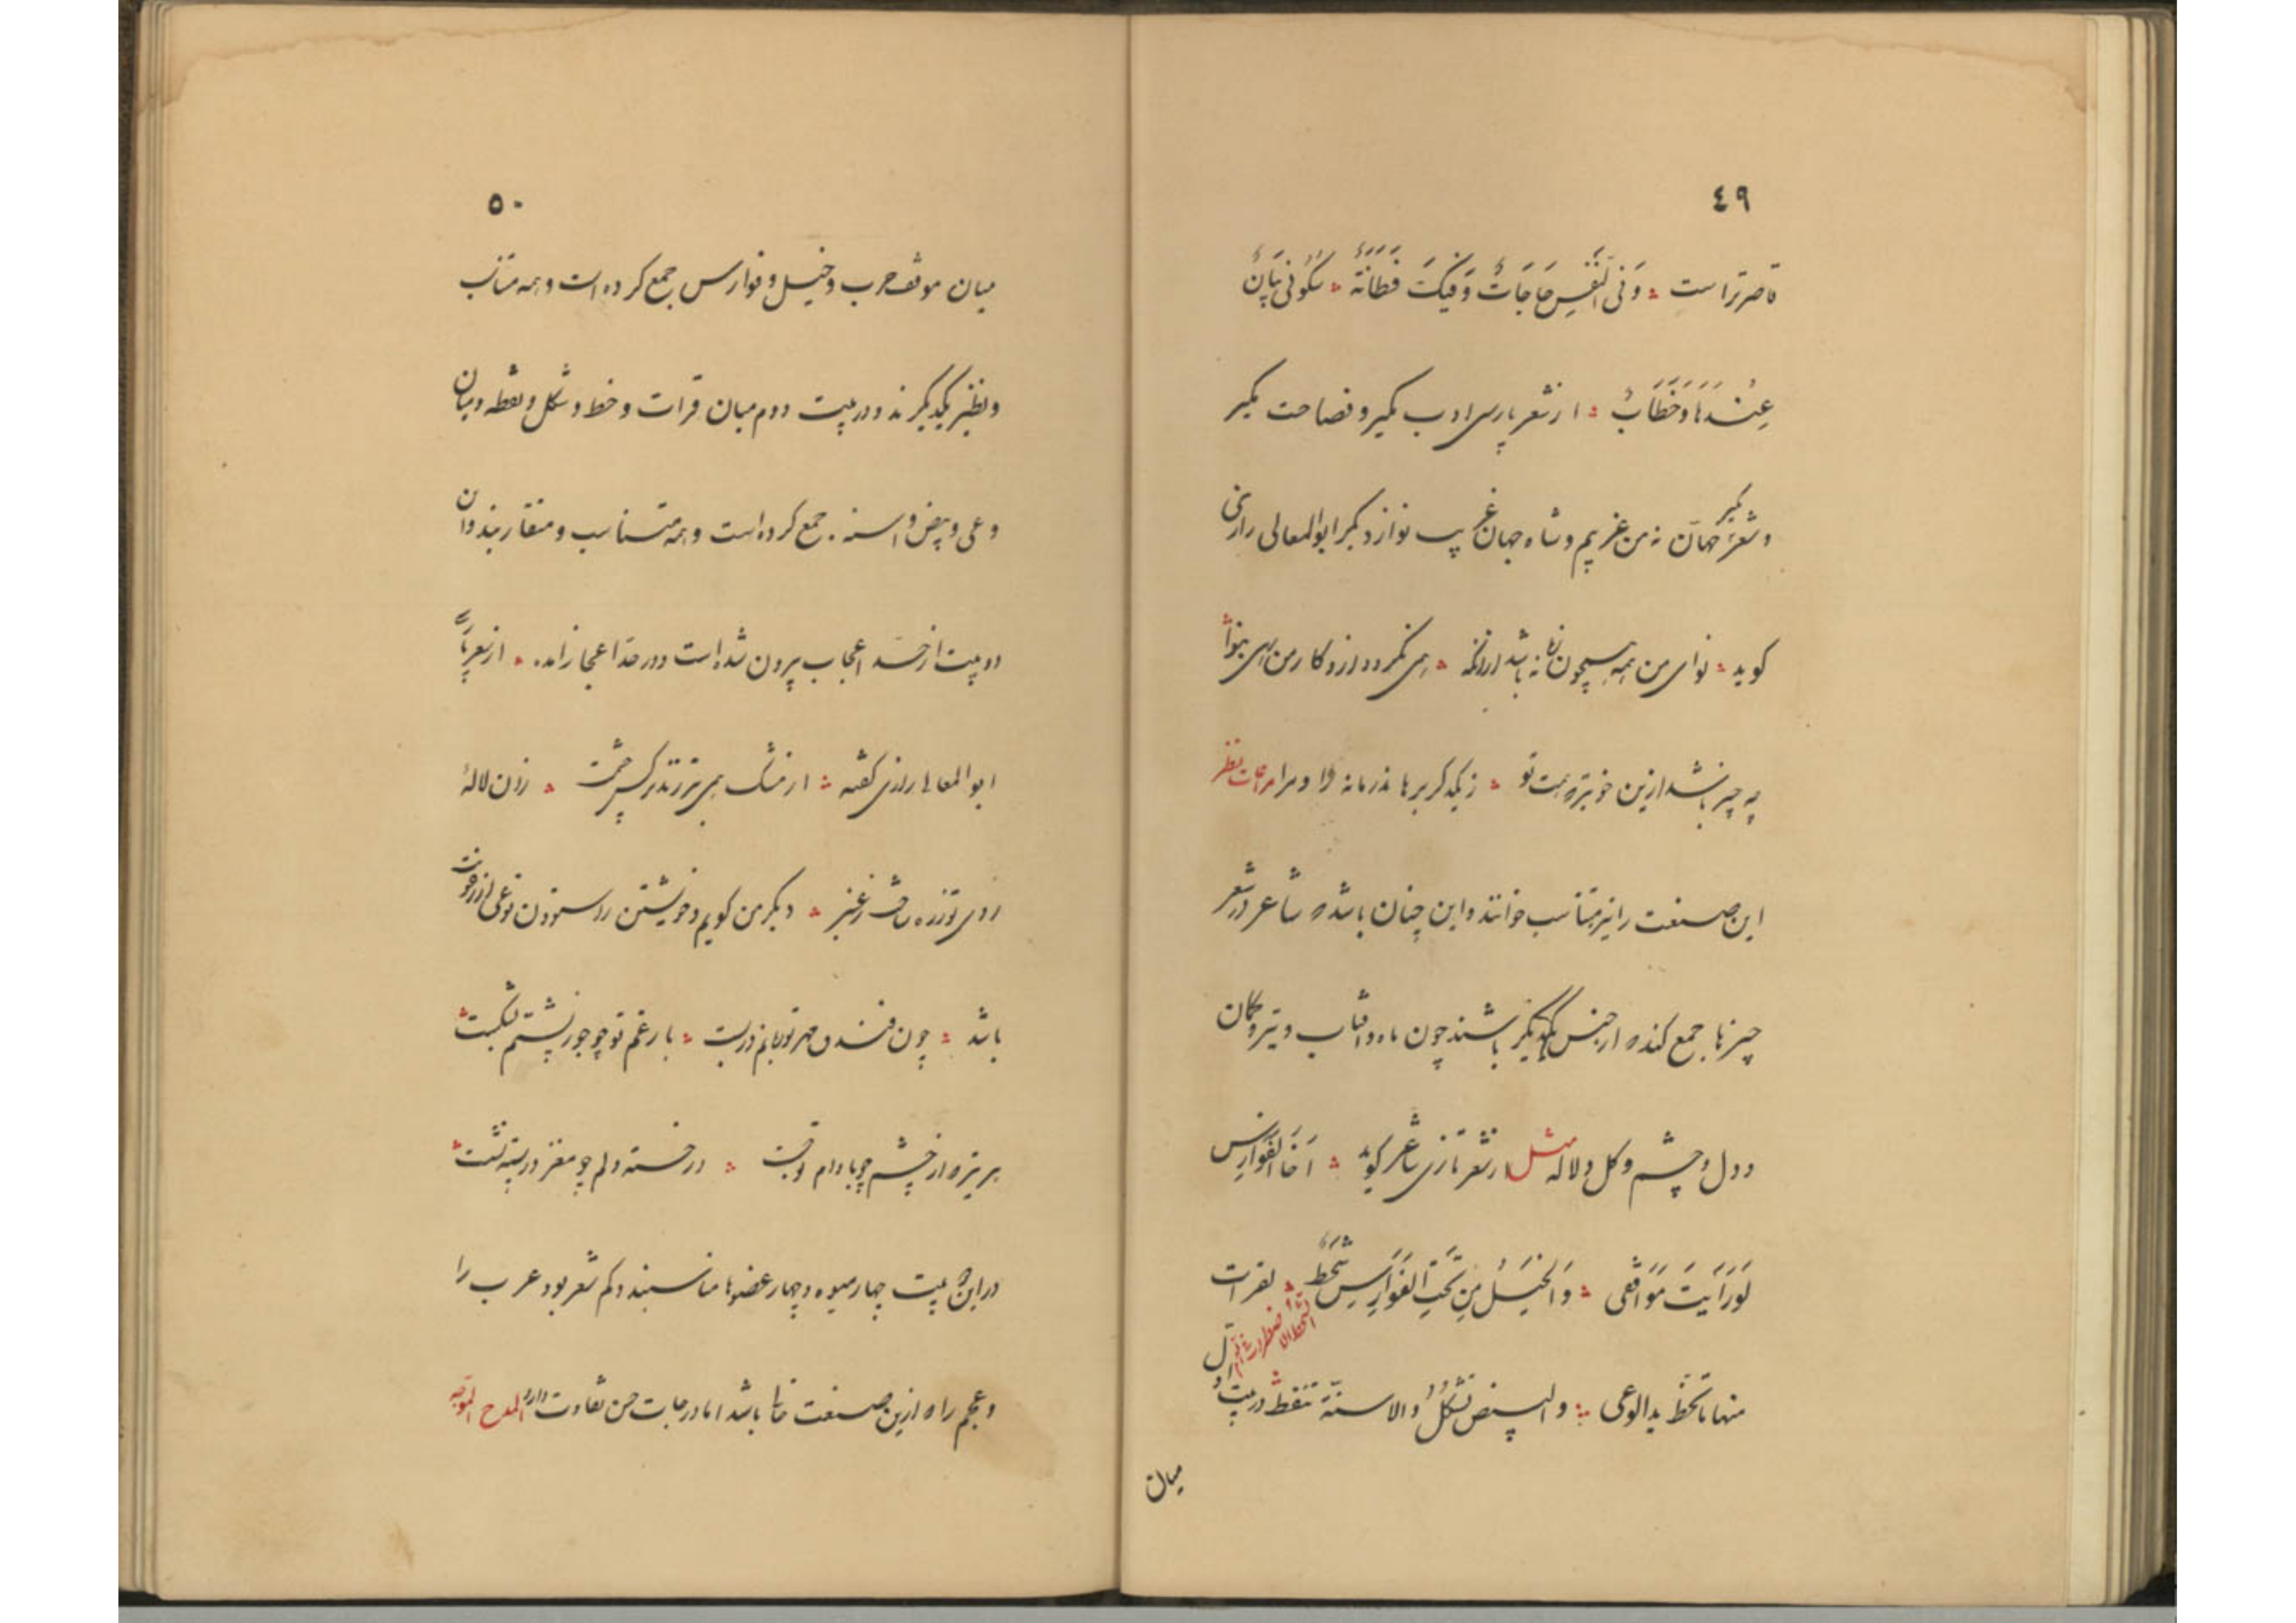 ٤٩
قاصرتر است ؞ وَفی النَّفْسِ حَاجَاتٌ وَفیکَ فَطَانَةٌ ؞ سُکُوتی بَیَانٌ
عِنْدَهَا وَخِطَابُ ؞ از شعر پارسی ادیب بکیر و فصاحت بکیر
و شعر بکیر جهان نه من غریبم و شاه جهان غریب نواز دیکر ابوالمعالی رازی
کوید ؞ نوای من همه همچون نه باشد ار ؞ همی نکردد از و کار من همی بنوا
چه چیز باشد ازین خوبتر همت تو ؞ ز یکدکر برهاند زمانه را و مرا مراعات نظیر
این صنعت را نیز متناسب خوانند و این چنان باشد که شاعر در شعر
چیزها جمع کند که از جنس یکدیکر باشند چون ماه و آفتاب و تیر و کمان
و دل و چشم و کل و لاله مثل از شعر تازی شاعر کوید ؞ اَخَا الفَوَارِسِ
لَوْ رَاَیْتَ مَوَاقِفی ؞ وَالخَیْلُ مِنْ تَحْتِ الفَوَارِسِ تَنْحِطُ ؞ لقرات
النحط الاضطراب
منها ما تَخُطُّ ید الوغی ؞ والبیض تَشْکُلُ والاسنّة تنقط در بیت اول
میان
٥٠
میان موقف حرب و خیل و فوارس جمع کرده است و همه متناسب
و نظیر یکدیکرند و در بیت دوم میان قرات و خط و شکل و نقطه و میان
وغی و بیض و اسنه جمع کرده است و همه متناسب و متقاربند و این
دو بیت از حد اعجاب بیرون شده است و در حد اعجاز آمده ؞ از شعر پارسی
ابوالمعالی رازی کفته ؞ از مشک همی تیر زند نرکس چشمت ؞ زان لالهٔ
روی تو زره ساخت ز عنبر ؞ دیکر من کویم و خویشتن را ستودن نوعی از رعونت
باشد ؞ چون فندق مهر تو دهانم بربست ؞ بار غم تو چو جوز پشتم بشکست ؞
هر تیر که از چشم چو بادام تو جست ؞ در خسته دلم چو مغز در پسته نشست ؞
در این بیت چهار میوه و چهار عضوها مناسبند و کم شعر بود عرب را
و عجم را که ازین صنعت خالی باشد اما در درجات حسن تفاوت دارد المدح الموجه